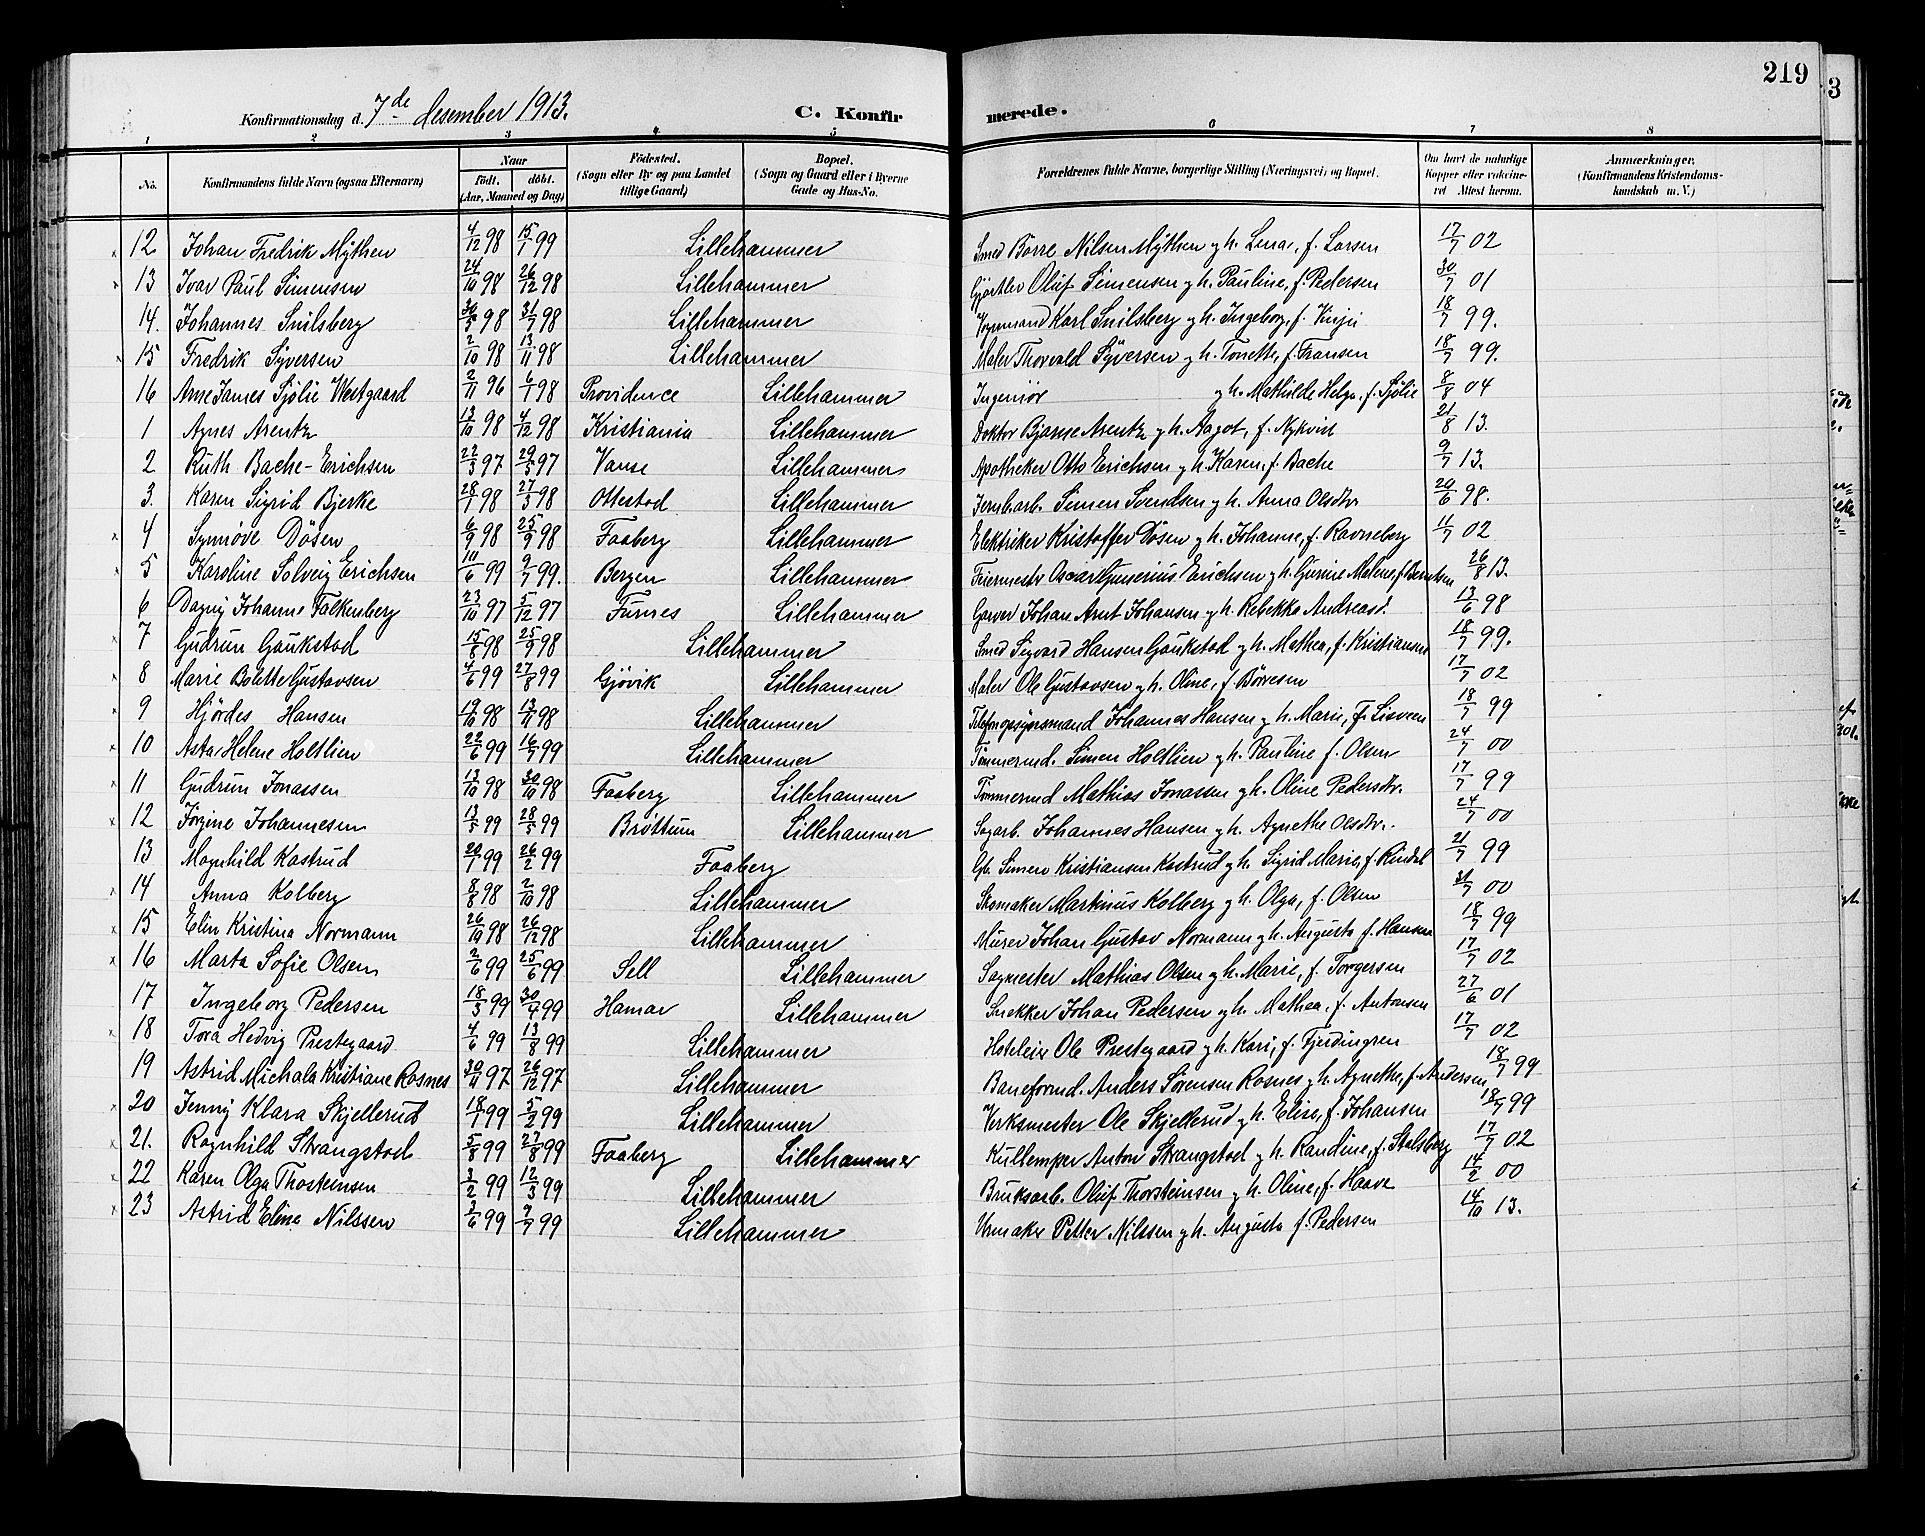 219
3
Konfirmationsdag d. 7de desember 1913. C. Konfirmerede.
1 2 3 4 5 6 7 8
No. Konfirmandens fulde Navn (ogsaa Efternavn) Naar født. døbt. (Aar, Maaned og Dag) Födested. (Sogn eller By og paa Landet tillige Gaard) Bopæl. (Sogn og Gaard eller i Byerne Gade og Hus-No. Forældrenes fulde Navne, borgerlige Stilling (Næringsvei) og Bopæl. Om havt de naturlige Kopper eller vakcineret Attest herom. Anmærkninger. (Konfirmandens Kristendomskundskab m. V.)
x 12 Johan Fredrik Mythen 4/12 98 15/1 99 Lillehammer Smed Börre Nilsen Mythen og h. Lena, f. Larsen 17/7 02
x 13 Ivar Paul Simensen 24/10 98 26/12 98 Lillehammer Gjørtler Oluf Simensen og h. Pauline, f. Pedersen 30/7 01
14. Johannes Snilsberg 30/5 98 31/7 98 Lillehammer Vognmand Karl Snilsberg og h. Ingeborg, f. 18/7 99.
x 15 Fredrik Syversen 2/10 98 13/11 98 Lillehammer Maler Thorvald Syversen og h. Tonette, f. Fransen 18/7 99.
16 Arne James Sjølie Westgaard 2/11 96 6/1 98 Providence Lillehammer Ingeniör og h. Mathilde Helga, f. Sjølie 8/8 04
1 Agnes Arentz 13/10 98 4/12 98 Kristiania Lillehammer Doktor Bjarne Arentz og h. Aagot, f. Nykvist 21/8 13.
2 Ruth Bache-Erichsen 22/3 97 29/5 97 Vanse Lillehammer Apotheker Otto Erichsen og h. Karen, f. Bache 9/7 13.
3. Karen Sigrid Bjerke 28/1 98 27/3 98 Ottestad Lillehammer Jernbarb. Simen Svendsen og h. Anna Olsdtr. 20/6 98.
x 4 Synnöve Dösen 6/9 98 25/9 98 Faaberg Lillehammer Elektriker Kristoffer Dösen og h. Johanne, f. Ravneberg 11/7 02
x 5 Karoline Solveig Erichsen 10/6 99 9/7 99. Bergen Lillehammer Feiermestr Oscar Gunerius Erichsen og h. Gurine Malene, f. Berntsen 26/8 13.
6 Dagny Johanne Falkenberg 23/10 97 5/12 97 Furnes Lillehammer Garver Johan Arnt Johansen og h. Rebekka Andreasd. 13/6 98
x 7 Gudrun Gaukstad 15/8 98 25/9 98 Lillehammer Smed Sigvard Hansen Gaukstad og h. Mathea, f. Kristiansen 18/7 99.
x 8 Marie Bolette Gustavsen 4/6 99 27/8 99 Gjövik Lillehammer Maler Ole Gustavsen og h. Oline, f. Börresen 17/7 02
x 9 Hjördes Hansen 19/10 98 13/11 98 Lillehammer Telefonopsynsmand Johannes Hansen og h. Marie, f. Lisveen 18/7 99
x 10 Asta Helene Holtlien 22/6 99 16/7 99 Lillehammer Tømmermd. Simen Holtlien og h. Pauline f. Olsen 24/7 00
x 11 Gudrun Jonassen 13/10 98 30/10 98 Faaberg Lillehammer Tømmermd Mathias Jonassen og h. Oline Pedersdtr. 17/7 99
x 12 Jörgine Johannesen 13/5 99 28/5 99 Bröttum Lillehammer Sagarb. Johannes Hansen og h. Agnethe Olsdtr. 24/7 00
13 Magnhild Kastrud 20/1 99 26/2 99 Faaberg Gb. Simen Kristiansen Kastrud og h. Sigrid Marie, f. Rindal 21/7 99
x 14 Anna Kolberg 8/8 98 2/10 98 Lillehammer Skomaker Martinus Kolberg og h. Olga, f. Olsen 31/7 00
x 15 Elin Kristina Normann 26/10 98 26/12 98 Lillehammer Murer Johan Gustav Normann og h. Augusta f. Hansen 18/7 99
x 16 Marta Sofie Olsen 2/6 99 25/6 99 Sell Lillehammer Sagmester Mathias Olsen og h. Marie, f. Torgersen 17/7 02
17 Ingeborg Pedersen 18/3 99 30/4 99 Hamar Lillehammer Snekker Johan Pedersen og h. Mathea, f. Antonsen 27/6 01
x 18 Tora Hedvig Prestegaard 4/6 99 13/8 99 Lillehammer Hoteleier Ole Prestegaard og h. Kari, f. Fjerdingren 17/7 02
19 Astrid Michala Kristiane Rosnes 30/11 97 26/12 97 Lillehammer Baneformd. Anders Sørensen Rosnes og h. Agnethe, f. Andersen 18/7 99
x 20 Jenny Klara Skjellerud 18/1 99 5/2 99 Lillehammer Verksmester Ole Skjellerud og h. Elise, f. Johansen 18/7 99
x 21. Ragnhild Strangstad 5/8 99 27/8 99 Faaberg Lillehammer Kullemper Anton Strangstad og h. Randine, f. Stalsberg 17/7 02
x 22 Karen Olga Thosteinsen 3/2 99 12/3 99 Lillehammer Bruksarb. Oluf Thorsteinsen og h. Oline, f. Haave 14/2 00
x 23 Astrid Eline Nilssen 3/6 99 9/7 99 Lillehammer Urmaker Petter Nilssen og h. Augusta f. Pedersen 14/10 13.